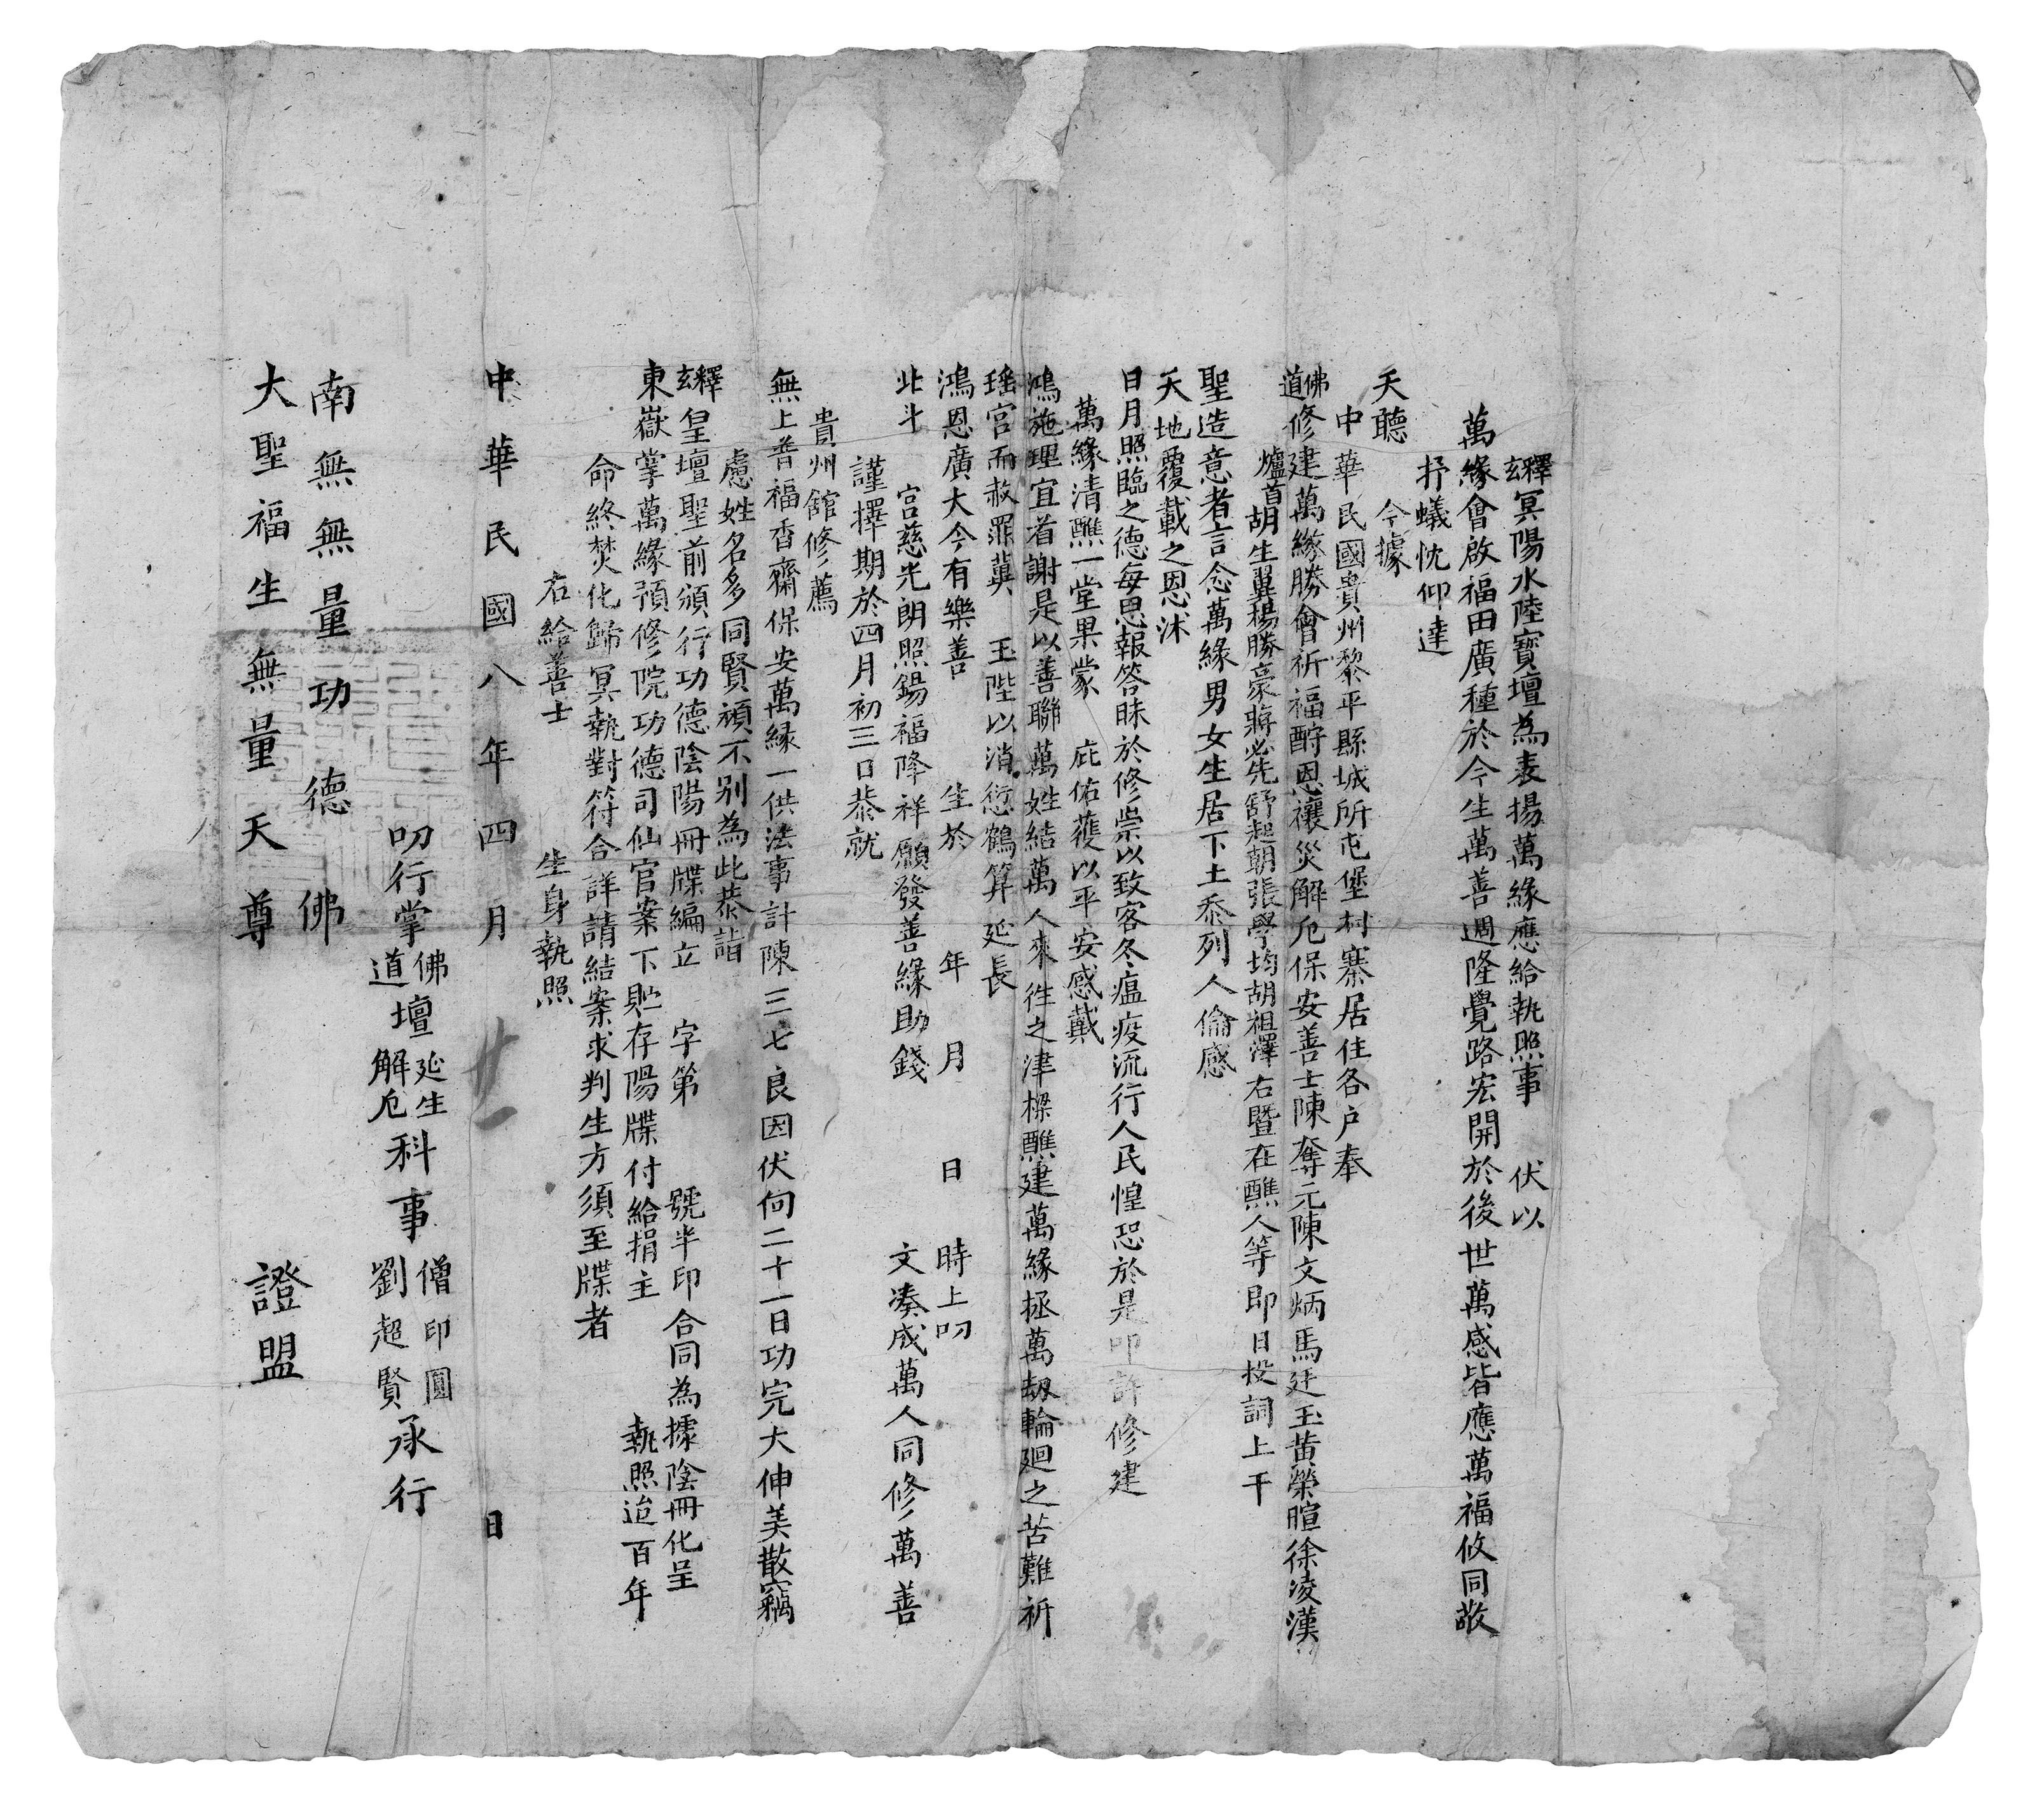 釋玄冥陽水陸寶壇為表揚萬緣應給執照事　伏以
萬緣會啟福田廣種於今生萬善週隆覺路宏開於後世萬感皆應萬福攸同敬
抒蟻忱仰達
天聽　今據
中華民國貴州黎平縣城所屯堡村寨居住各户奉
佛道修建萬緣勝會祈福酧恩禳災解厄保安善士陳奪元陳文炳馬廷玉黃榮暄徐凌漢
爐首胡生翼楊勝豪蔣必先舒起朝張學均胡祖澤右暨在醮人等即日投詞上干
聖造意者言念萬緣男女生居下土忝列人倫感
天地覆載之恩沐
日月照臨之德每思報答昧於修崇以致客冬瘟疫流行人民惶恐於是叩許修建
萬緣清醮一堂果蒙　庇佑獲以平安感戴
鴻施理宜首謝是以善聯萬姓結萬人來徃之津樑醮建萬緣拯萬劫輪廻之苦難祈
瑶宫而赦罪冀　玉陛以消愆鶴算延長
鴻恩廣大今有樂善　生於　年　月　日　時上叩
北斗　宫慈光朗照錫福降祥願發善緣助錢　文凑成萬人同修萬善
謹擇期於四月初三日恭就
貴州館修薦
無上普福香齋保安萬緣一供法事計陳三七良因伏向二十一日功完大伸美散竊
慮姓名多同賢頑不別為此恭詣
釋玄皇壇聖前頒行功德陰陽冊牒編立　字第　號半印合同為據陰冊化呈
東嶽掌萬緣預修院功德司仙官案下貯存陽牒付給捐主　執照迨百年
命終焚化歸冥執對符合詳請結案求判生方須至牒者
右給善士　生身執照
中華民國八年四月廿一日
叨行掌佛道壇延生解厄科事僧印圓劉超賢承行
南無無量功德佛
大聖福生無量天尊　證盟